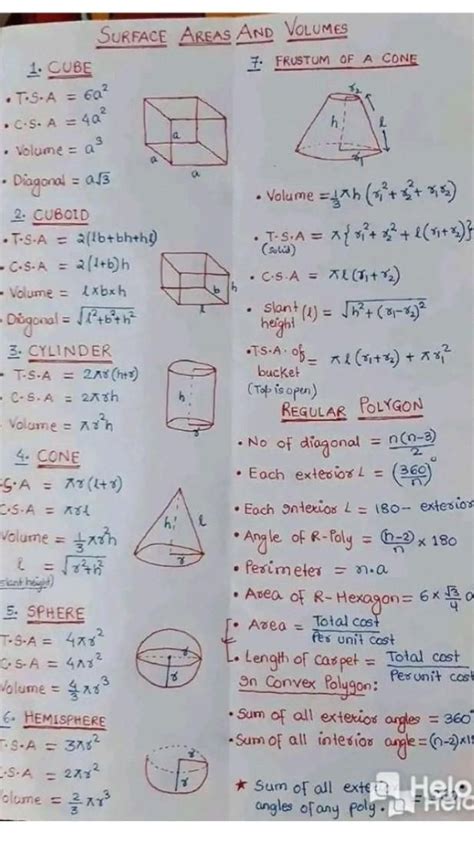 SURFACE AREAS AND VOLUMES
1. CUBE
• T.S.A = 6a²
• C.S.A = 4a²
• Volume = a³
• Diagonal = a√3
a
a
a
2. CUBOID
• T.S.A = 2(lb+bh+hl)
• C.S.A = 2(l+b)h
• Volume = l×b×h
• Diagonal = √l²+b²+h²
h
b
l
3. CYLINDER
• T.S.A = 2πr(h+r)
• C.S.A = 2πrh
• Volume = πr²h
h
r
4. CONE
S.A = πr(l+r)
C.S.A = πrl
Volume = 1/3 πr²h
l = √r²+h²
(slant height)
h
l
r
5. SPHERE
T.S.A = 4πr²
C.S.A = 4πr²
Volume = 4/3 πr³
r
r
6. HEMISPHERE
T.S.A = 3πr²
C.S.A = 2πr²
Volume = 2/3 πr³
r
7. FRUSTUM OF A CONE
r₂
h
l
r₁
• Volume = 1/3 πh (r₁²+r₂²+r₁r₂)
• T.S.A = π{r₁²+r₂²+l(r₁+r₂)}
(solid)
• C.S.A = πl(r₁+r₂)
• Slant (l) = √h²+(r₁-r₂)²
height
• T.S.A. of = πl(r₁+r₂) + πr₁²
bucket
(Top is open)
REGULAR POLYGON
• No of diagonal = n(n-3)/2
• Each exterior L = (360/n)°
• Each Interior L = 180 - exterior
• Angle of R-Poly = (n-2)/n × 180
• Perimeter = n.a
• Area of R-Hexagon = 6 × √3/4 a
• Area = Total cost/Per unit cost
• Length of carpet = Total cost/Per unit cost
In Convex Polygon:
• Sum of all exterior angles = 360°
• Sum of all interior angle = (n-2)×18
★ Sum of all
angles of any poly.
Helo
Helo